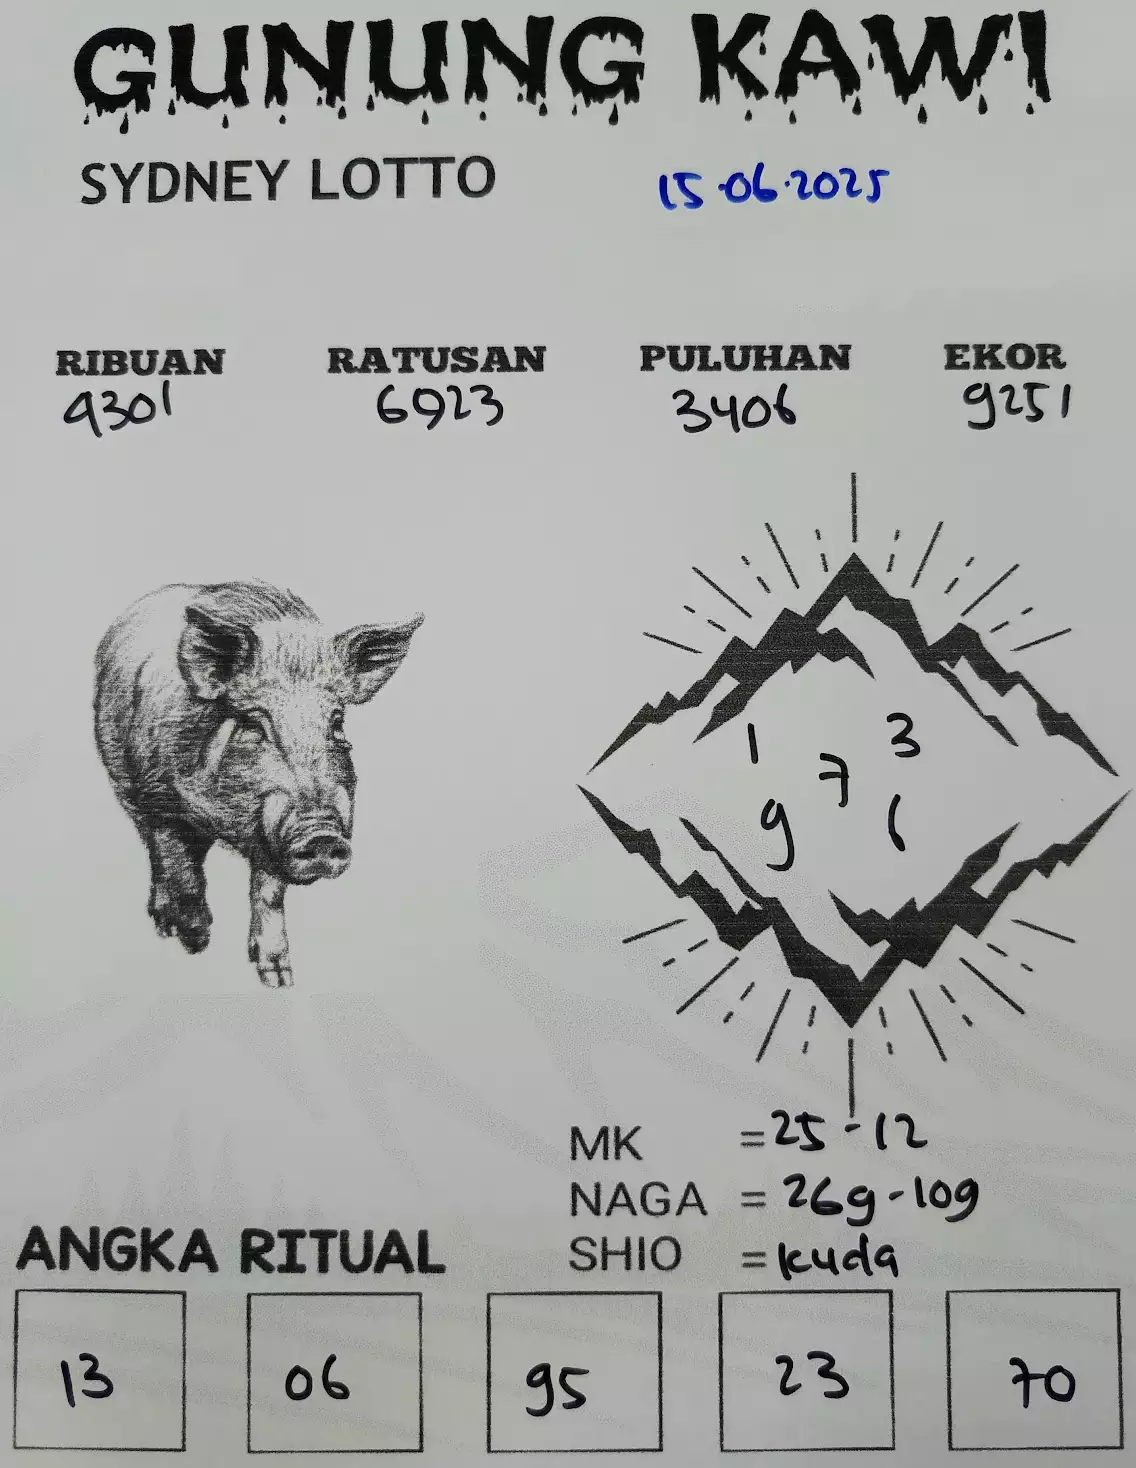 GUNUNG KAWI
SYDNEY LOTTO 15.06.2025
RIBUAN RATUSAN PULUHAN EKOR
9301 6923 3406 9251
1 3
7
9 6
MK = 25 - 12
NAGA = 269 - 109
ANGKA RITUAL
SHIO = kuda
13 06 95 23 70